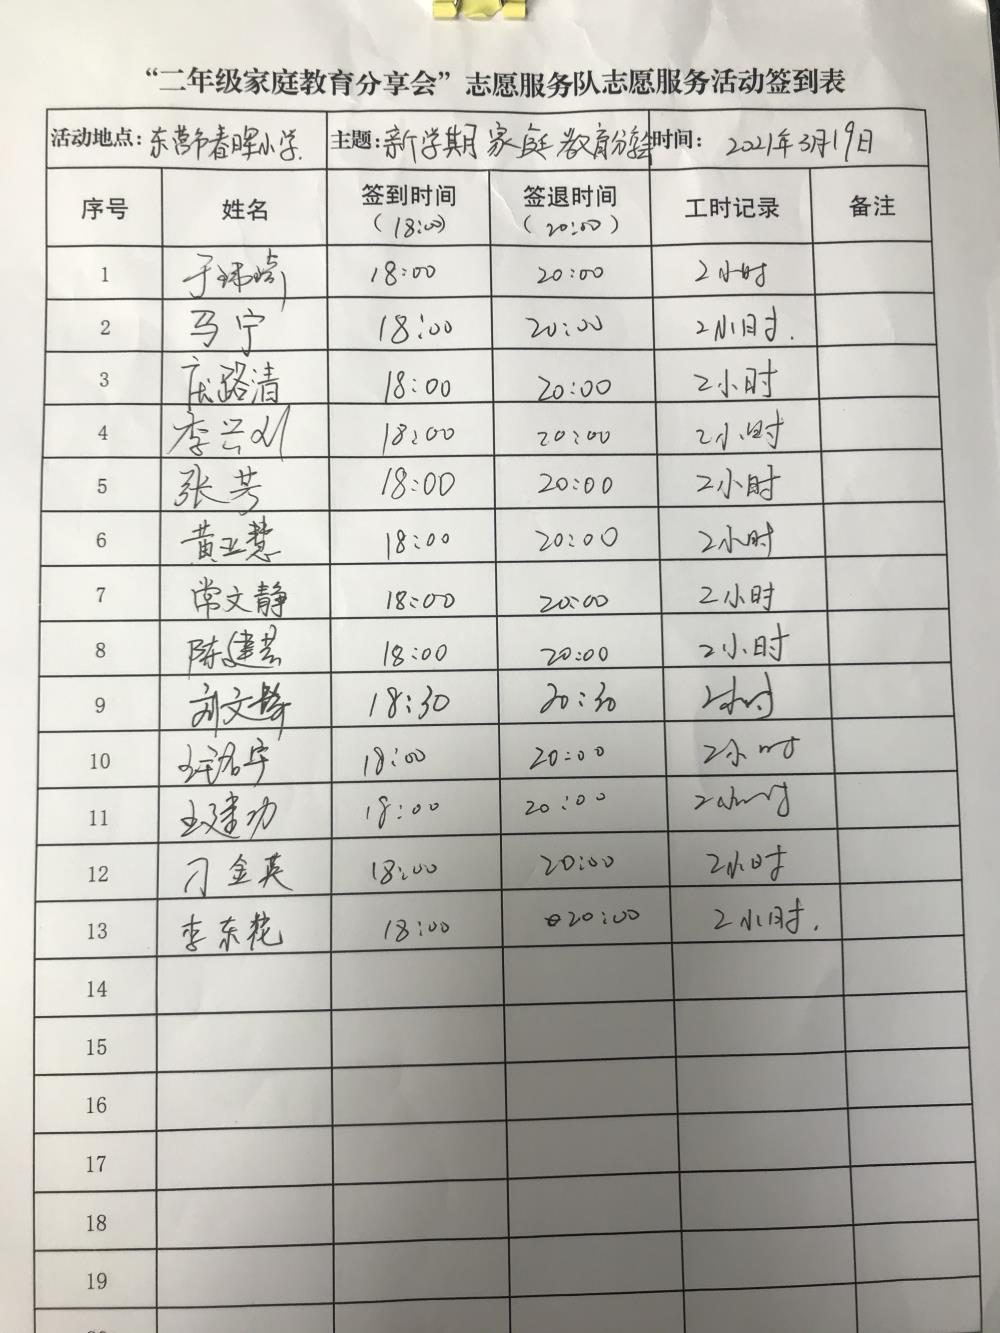 “二年级家庭教育分享会”志愿服务队志愿服务活动签到表
活动地点：东营市春晖小学 主题：新学期家庭教育分享会 时间：2021年3月19日
序号 姓名 签到时间（18:00） 签退时间（20:00） 工时记录 备注
1 于 18:00 20:00 2小时
2 马宁 18:00 20:00 2小时.
3 路清 18:00 20:00 2小时
4 李 18:00 20:00 2小时
5 张芳 18:00 20:00 2小时
6 黄卫慧 18:00 20:00 2小时
7 常文静 18:00 20:00 2小时
8 陈建芸 18:00 20:00 2小时
9 刘文 18:30 20:30 2小时
10 宇 18:00 20:00 2小时
11 王建功 18:00 20:00 2小时
12 刁金英 18:00 20:00 2小时
13 李东花 18:00 20:00 2小时.
14
15
16
17
18
19